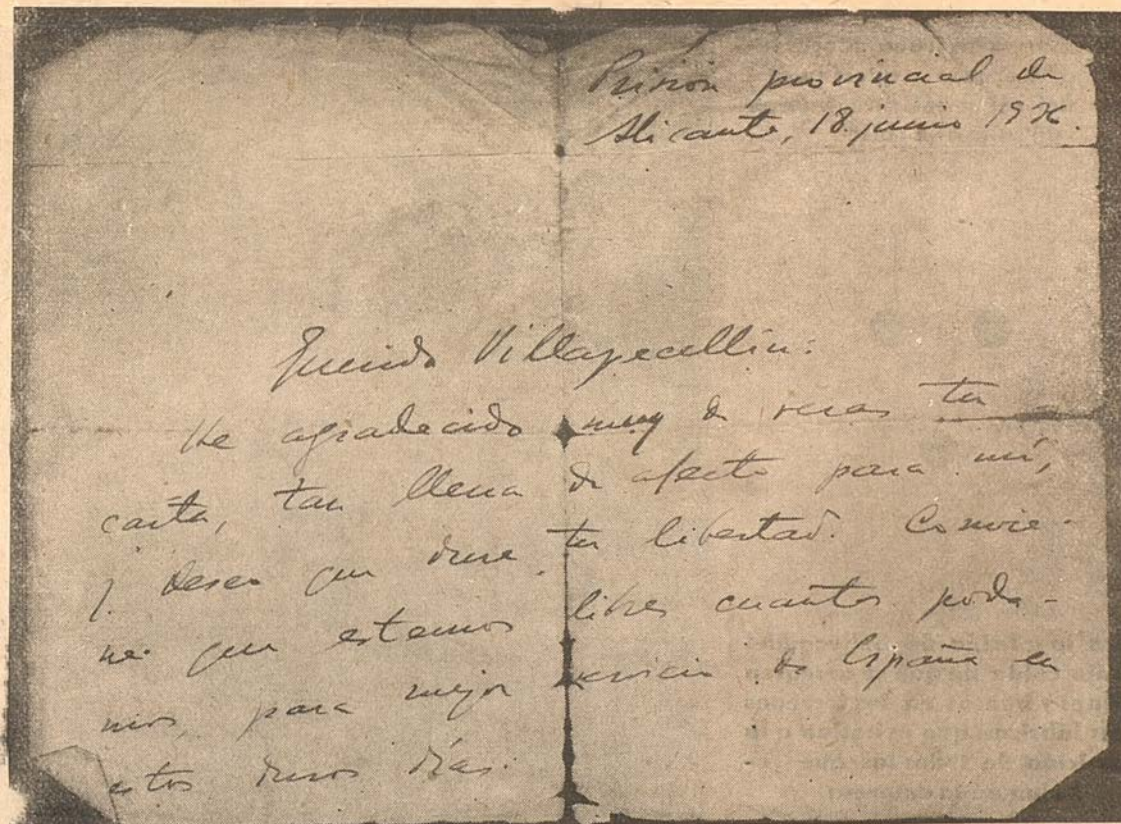 Prisión provincial de
Alicante, 18 junio 1936.
Querido Villapecellín:
He agradecido muy de veras tu
carta, tan llena de afecto para mí,
y deseo que dure tu libertad. Convie-
ne que estemos libres cuantos poda-
mos, para mejor servicio de España en
estos duros días.